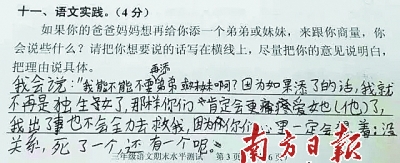 十一、语文实践。(4分)
如果你的爸爸妈妈想再给你添一个弟弟或妹妹,来跟你商量,你
会说些什么?请把你想要说的话写在横线上,尽量把你的意见说明白,
把理由说具体。
再添
我会说:"我能不能不要弟弟或妹妹啊?因为如果添了的话,我就
不再是独生女了,那样你们肯定会更疼爱她(他)了,
我出了事也不会全力去救我,因为你们心里一定会想着:没
关系,死了一个还有一个呢。
南方日报
三年级语文期末水平测试 第3页 6页